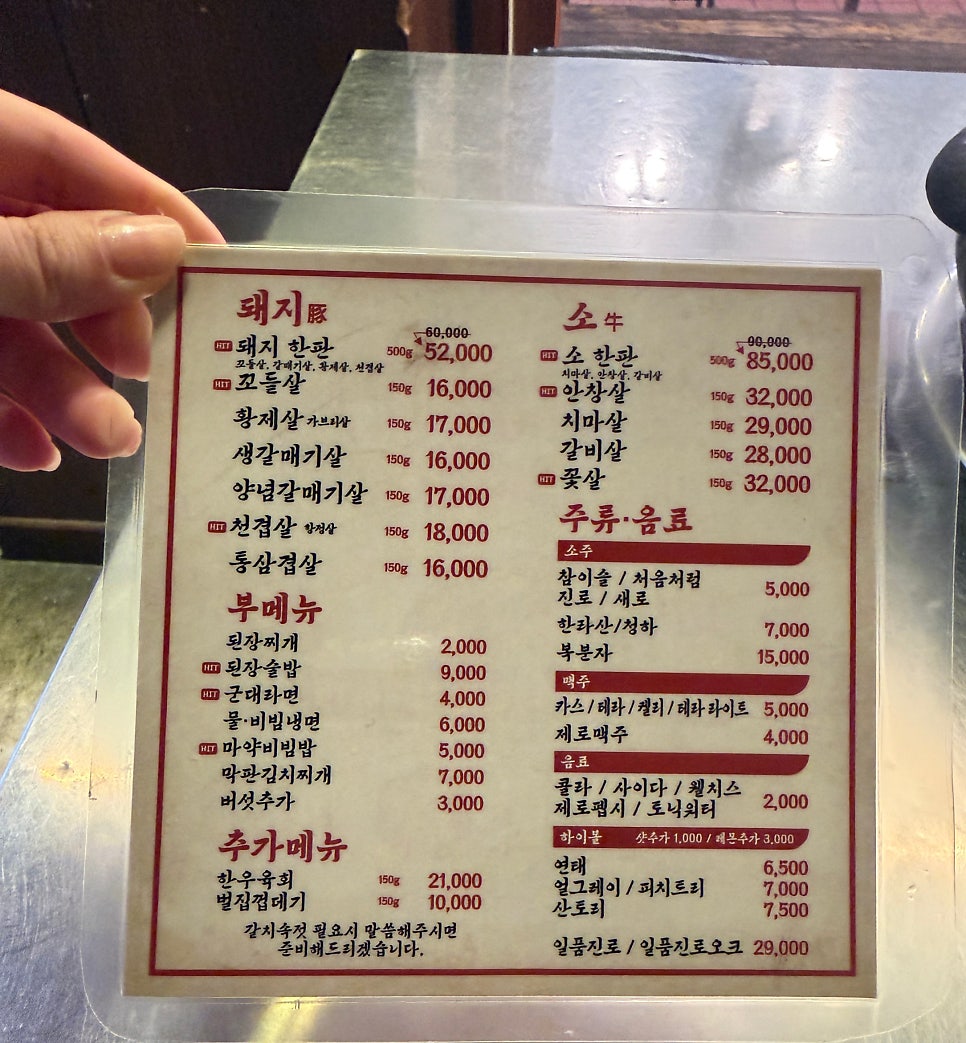 돼지 豚
60,000
HIT 돼지 한판 500g 52,000
꼬들살, 갈매기살, 황제살, 천겹살
HIT 꼬들살 150g 16,000
황제살 가브리살 150g 17,000
생갈매기살 150g 16,000
양념갈매기살 150g 17,000
HIT 천겹살 항정살 150g 18,000
통삼겹살 150g 16,000
부메뉴
된장찌개 2,000
HIT 된장술밥 9,000
HIT 군대라면 4,000
물·비빔냉면 6,000
HIT 마약비빔밥 5,000
막판김치찌개 7,000
버섯추가 3,000
추가메뉴
한우육회 150g 21,000
벌집껍데기 150g 10,000
갈치속젓 필요시 말씀해주시면
준비해드리겠습니다.
소 牛
90,000
HIT 소 한판 500g 85,000
치마살, 안창살, 갈비살
HIT 안창살 150g 32,000
치마살 150g 29,000
갈비살 150g 28,000
HIT 꽃살 150g 32,000
주류·음료
소주
참이슬 / 처음처럼
진로 / 새로 5,000
한라산/청하 7,000
복분자 15,000
맥주
카스/테라/켈리/테라 라이트 5,000
제로맥주 4,000
음료
콜라 / 사이다 / 웰치스
제로펩시 / 토닉워터 2,000
하이볼 샷추가 1,000 / 레몬추가 3,000
연태 6,500
얼그레이 / 피치트리 7,000
산토리 7,500
일품진로 / 일품진로오크 29,000